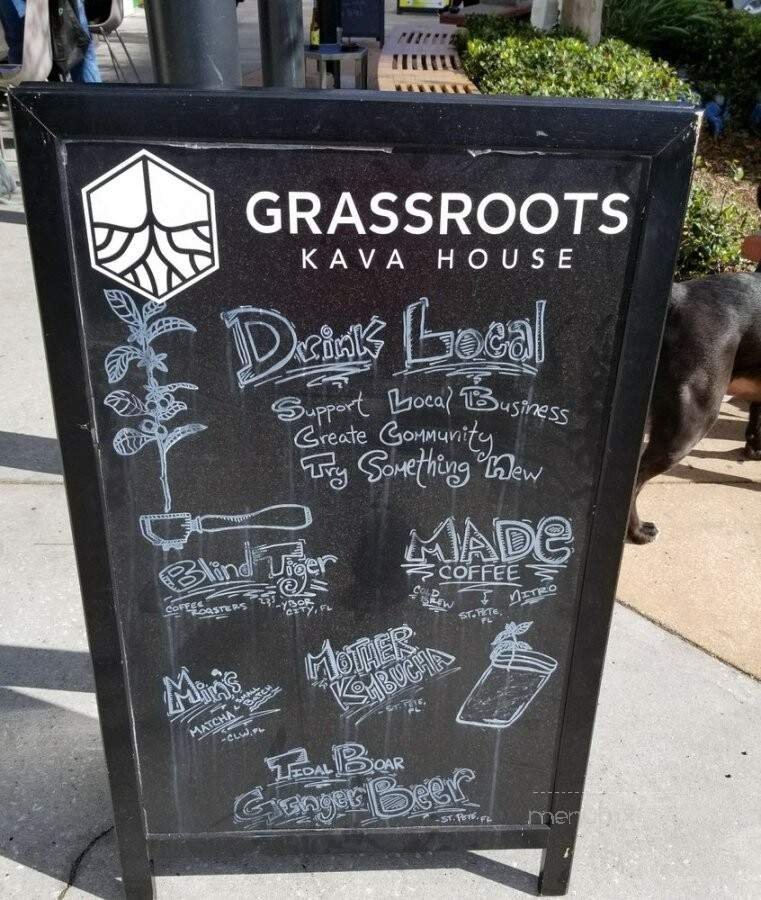 GRASSROOTS
KAVA HOUSE
Drink Local
Support Local Business
Create Community
Try Something New
Blind Tiger
COFFEE ROASTERS -YBOR CITY, FL
MADE
COFFEE
COLD BREW ST. PETE, FL NITRO
MOTHER
KOMBUCHA
-ST. PETE, FL
Min's
SMALL BATCH
MATCHA
-CLW, FL
TIDAL BOAR
Ginger Beer
-ST. PETE, FL